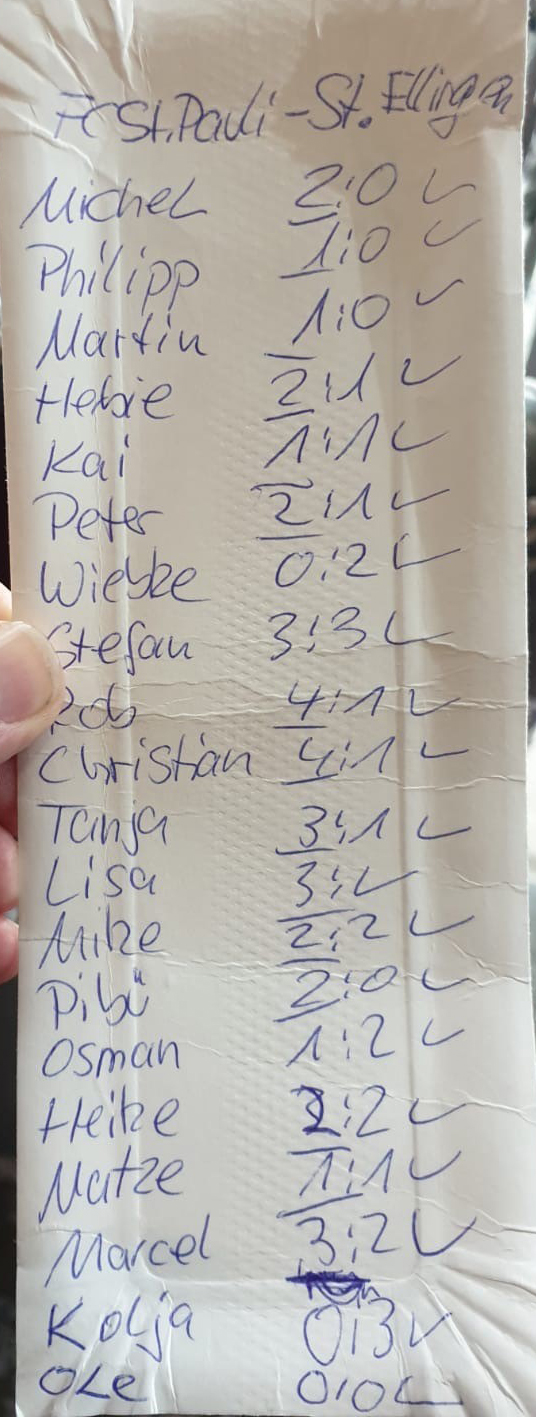 FC St. Pauli - St. Ellingen
Michel 2:0 ✓
Philipp 1:0 ✓
Martin 1:0 ✓
Hebie 2:1 ✓
Kai 1:1 ✓
Peter 2:1 ✓
Wiebke 0:2 ✓
Stefan 3:3 ✓
Rob 4:1 ✓
Christian 4:1 ✓
Tanja 3:1 ✓
Lisa 3: ✓
Mike 2:2 ✓
Pibü 2:0 ✓
Osman 1:2 ✓
Heike 2:2 ✓
Matze 1:1 ✓
Marcel 3:2 ✓
Kolja 0:3 ✓
Ole 0:0 ✓